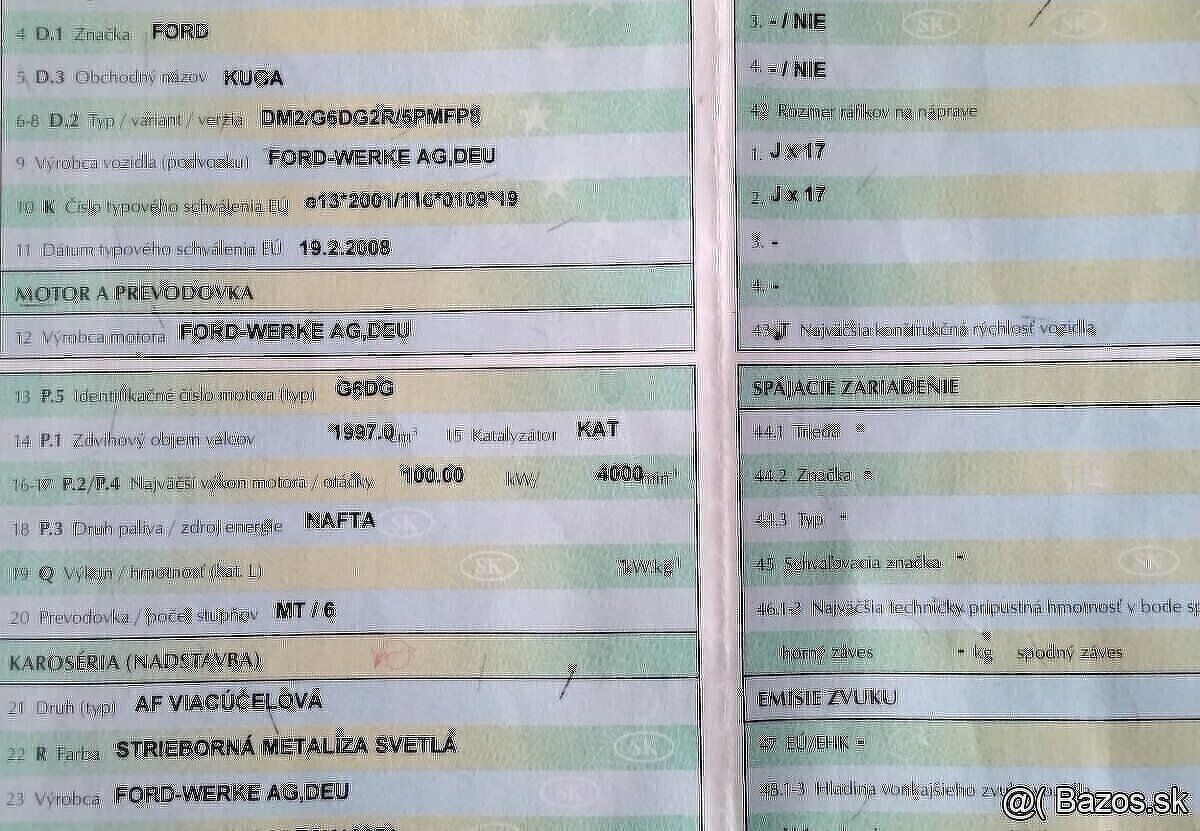 4 D.1 Značka FORD
5 D.3 Obchodný názov KUGA
6-8 D.2 Typ / variant / verzia DM2/G6DG2R/5PMFP6
9 Výrobca vozidla (podvozku) FORD-WERKE AG,DEU
10 K Číslo typového schválenia EÚ e13*2001/116*0109*19
11 Dátum typového schválenia EÚ 19.2.2008
MOTOR A PREVODOVKA
12 Výrobca motora FORD-WERKE AG,DEU
13 P.5 Identifikačné číslo motora (typ) G6DG
14 P.1 Zdvihový objem valcov 1997.0 cm³ 15 Katalyzátor KAT
16-17 P.2/P.4 Najväčší výkon motora / otáčky 100.00 kW/ 4000 min⁻¹
18 P.3 Druh paliva / zdroj energie NAFTA
19 Q Výkon / hmotnosť (kat. L) kW/kg⁻¹
20 Prevodovka / počet stupňov MT / 6
KAROSÉRIA (NADSTAVBA)
21 Druh (typ) AF VIACÚČELOVÁ
22 R Farba STRIEBORNÁ METALÍZA SVETLÁ
23 Výrobca FORD-WERKE AG,DEU
3. - / NIE
4. - / NIE
42 Rozmer ráfikov na náprave
1. J x 17
2. J x 17
3. -
4. -
43 T Najväčšia konštrukčná rýchlosť vozidla
SPÁJACIE ZARIADENIE
44.1 Trieda *
44.2 Značka *
44.3 Typ *
45 Schvaľovacia značka -
46.1-2 Najväčšia technicky prípustná hmotnosť v bode sp
horný záves - kg spodný záves
EMISIE ZVUKU
47 EÚ/EHK -
48.1-3 Hladina vonkajšieho zvuku
SK
SK
SK
SK
SK
SK
@( Bazos.sk